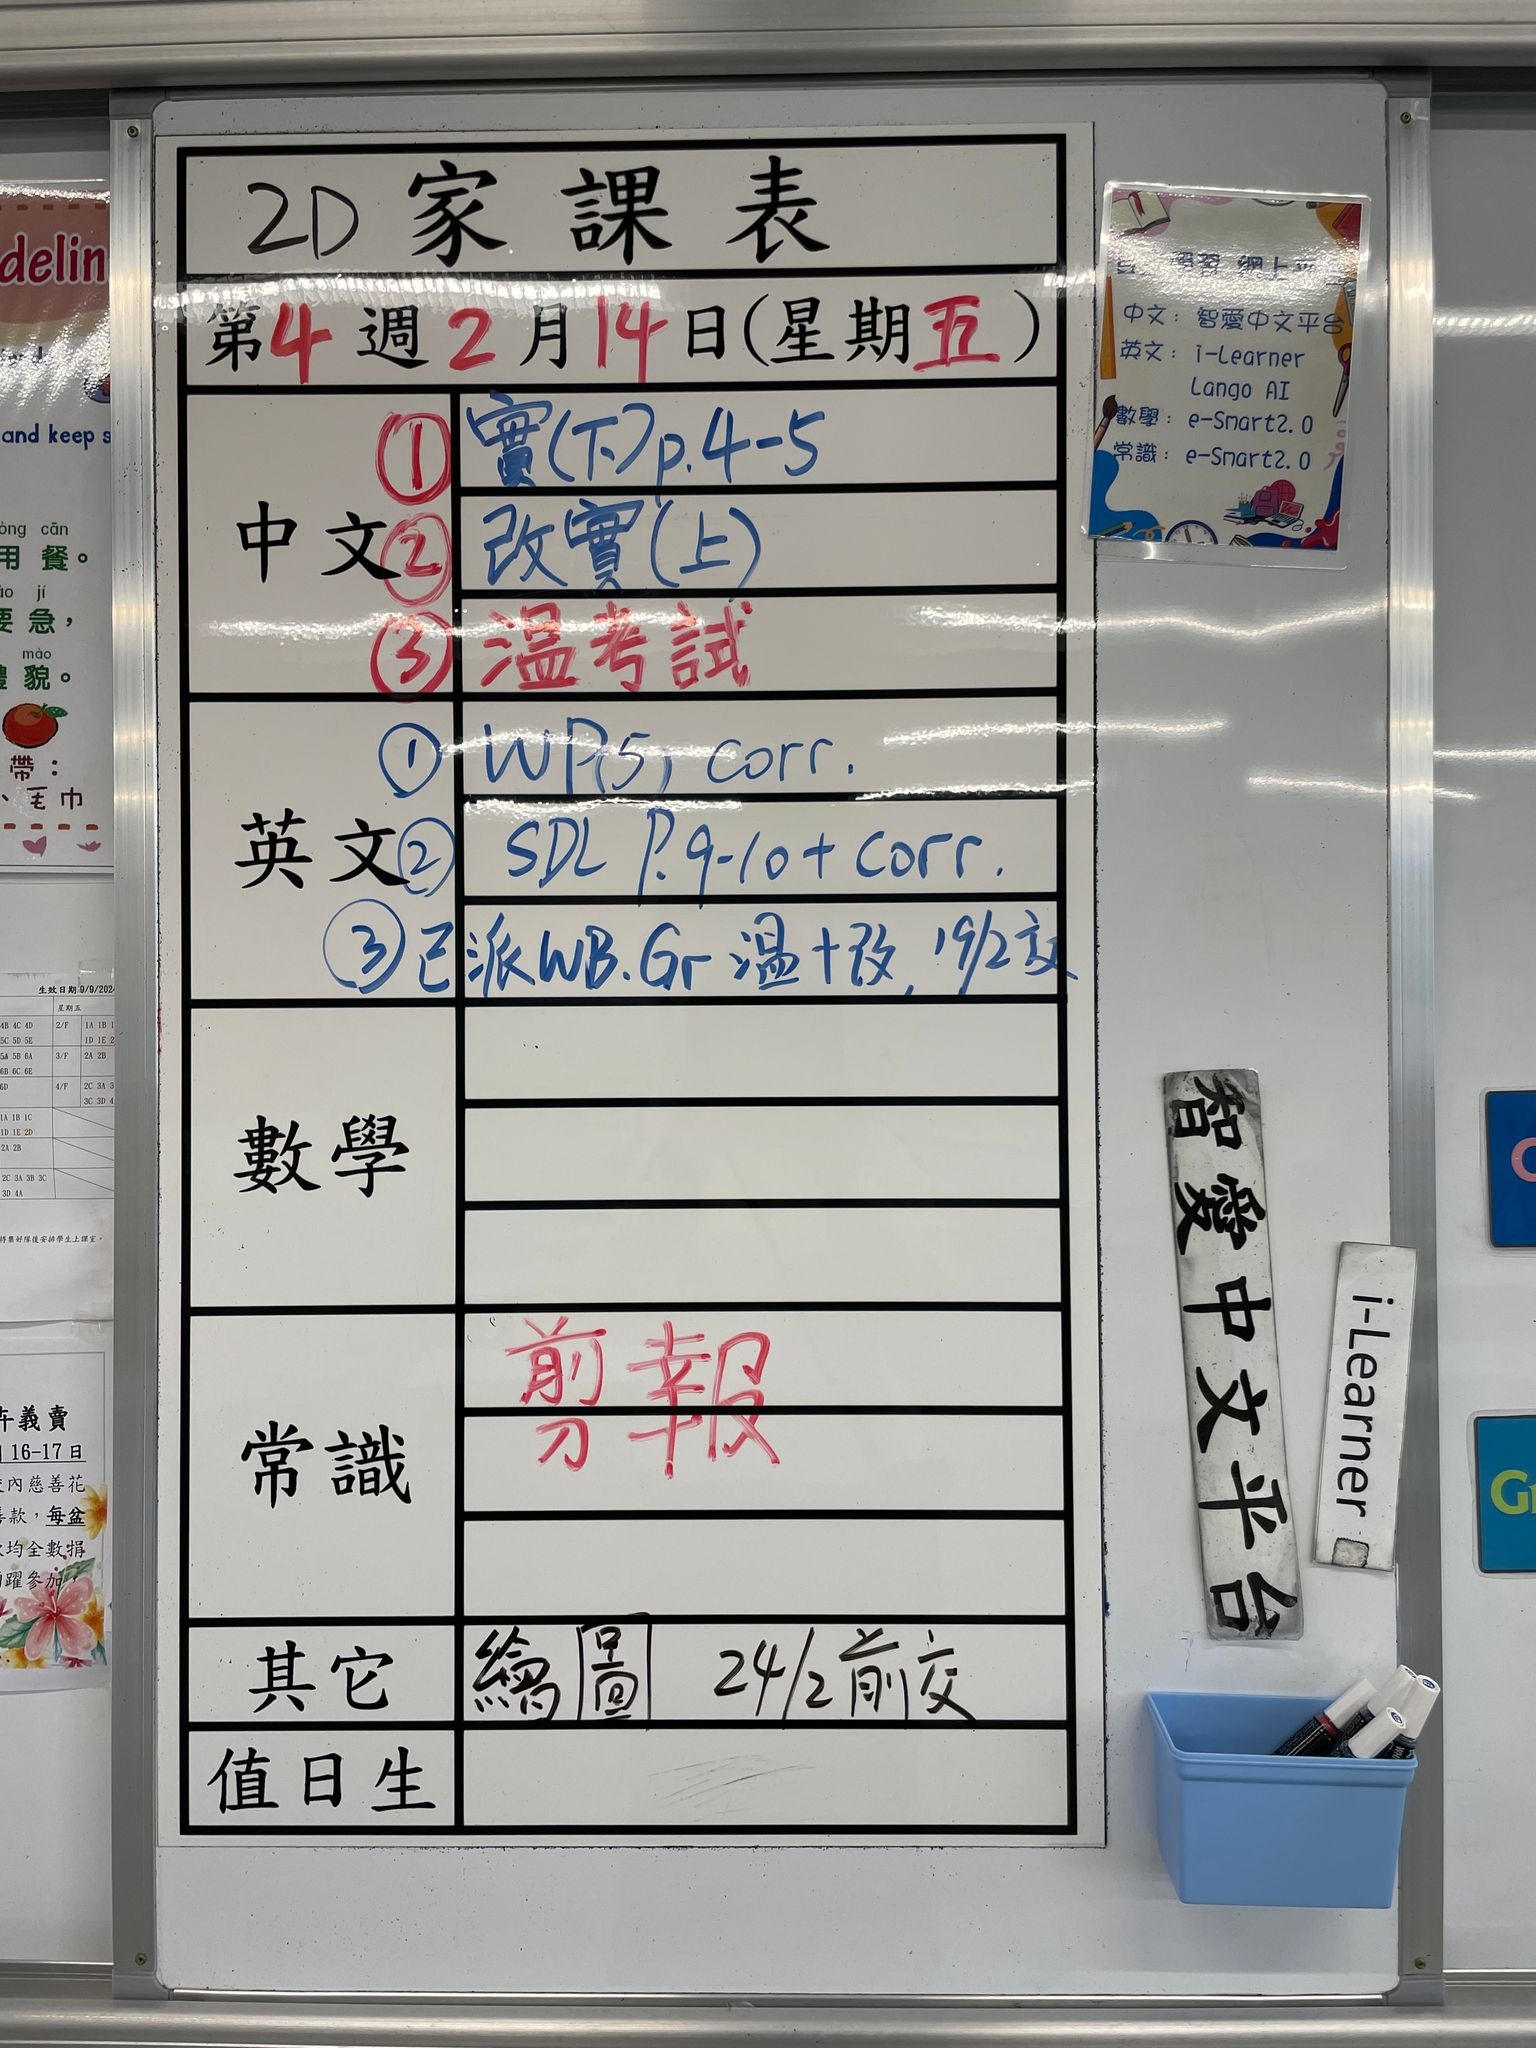 2D 家課表
第4週2月14日(星期五)
中文
① 實(下)p.4-5
② 改實(上)
③ 温考試
英文
① WP(5) corr.
② SDL P.9-10 + corr.
③ 已派WB.Gr 温+改, 19/2交
數學
常識
剪報
其它
繪圖 24/2前交
值日生
學習 網上
中文: 智愛中文平台
英文: i-Learner
Lango AI
數學: e-Smart2.0
常識: e-Smart2.0
智愛中文平台
i-Learner
delin
and keep s
òng cān
用餐。
ào jí
要急,
mào
禮貌。
帶:
、毛巾
生效日期 9/9/2024
星期五
4B 4C 4D 2/F 1A 1B 1
5C 5D 5E 1D 1E 2
5A 5B 6A 3/F 2A 2B
6B 6C 6E
6D 4/F 2C 3A 3
3C 3D 4
1A 1B 1C
1D 1E 2D
2A 2B
2C 3A 3B 3C
3D 4A
時集好隊後安排學生上課室。
義賣
月16-17日
校內慈善花
善款,每盆
款均全數捐
踴躍參加,